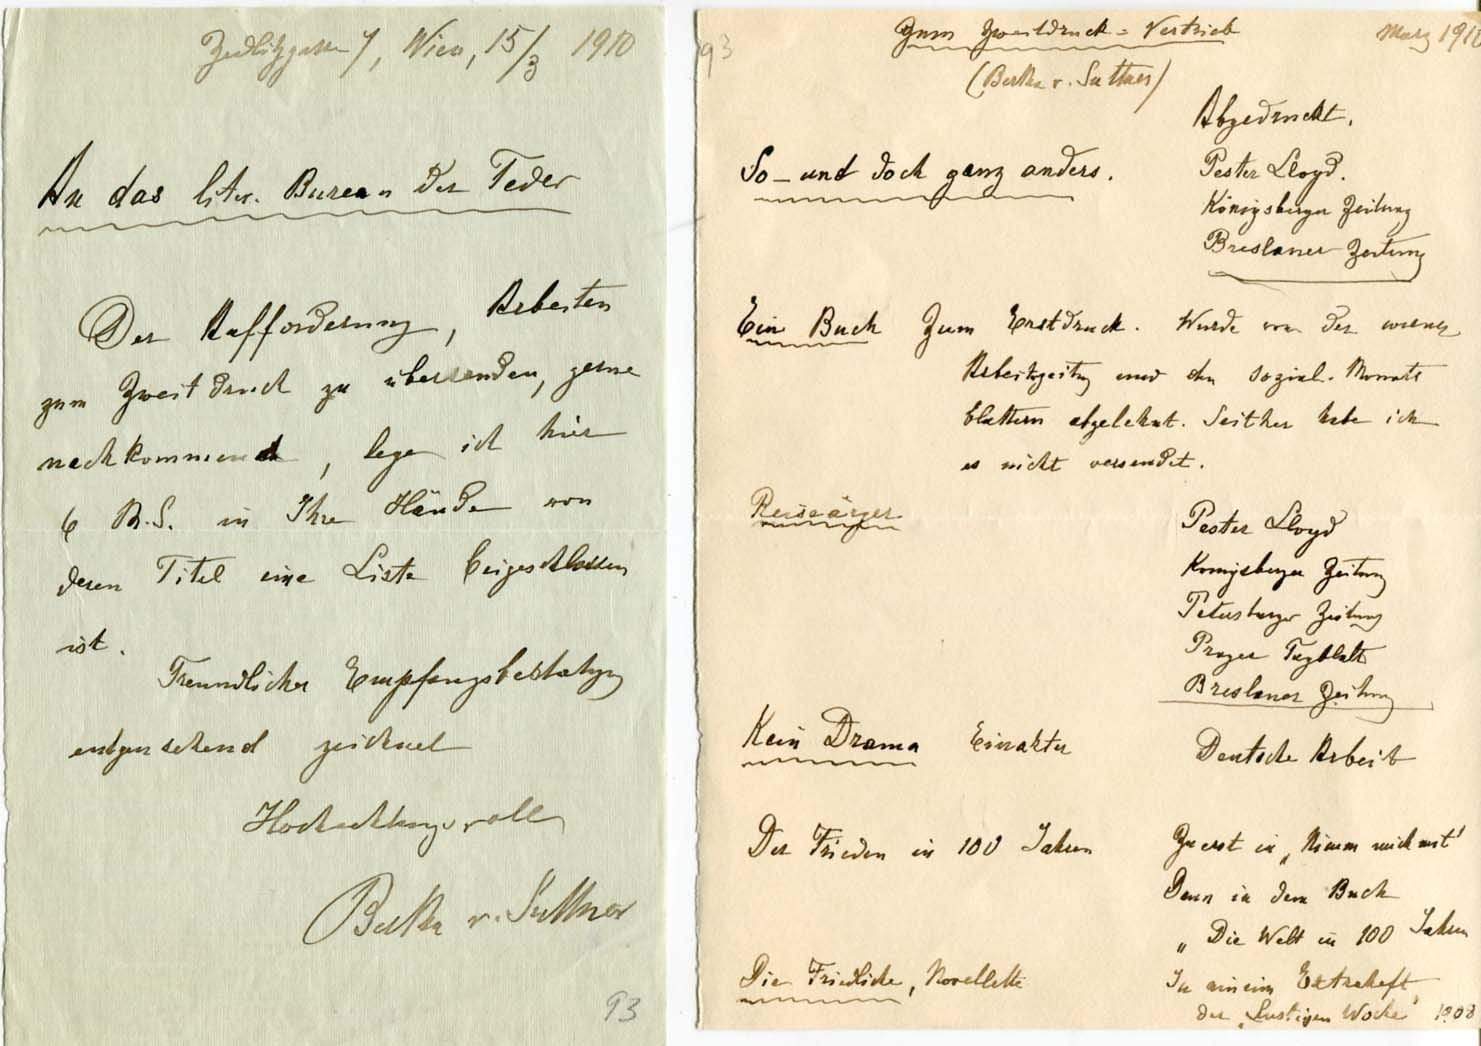 Zedlitzgasse 7, Wien, 15/3 1910
An das liter. Bureau der Feder
Der Aufforderung, Arbeiten
zum Zweitdruck zu übersenden, gerne
nachkommend, lege ich hier
6 M.S. in Ihre Hände von
deren Titel eine Liste beigeschlossen
ist.
Freundlicher Empfangsbestätigung
entgegensehend zeichnet
Hochachtungsvoll
Bertha v. Suttner
93
93
Zum Zweitdruck=Vertrieb
März 1910
(Bertha v. Suttner)
Abgedruckt.
So – und doch ganz anders.
Pester Lloyd.
Königsberger Zeitung
Breslauer Zeitung
Ein Buch Zum Erstdruck. Wurde von der wiener
Arbeitzeitung und den sozial. Monats
blättern abgelehnt. Seither habe ich
es nicht versendet.
Reiseärger
Pester Lloyd
Königsberger Zeitung
Petersburger Zeitung
Prager Tagblatt
Breslauer Zeitung
Kein Drama Einakter
Deutsche Arbeit
Der Frieden in 100 Jahren
Zuerst in „Nimm mich mit"
Dann in dem Buch
„Die Welt in 100 Jahren
Die Friedliche, Novellette
In einem Extraheft
der „Lustigen Woche" 1908